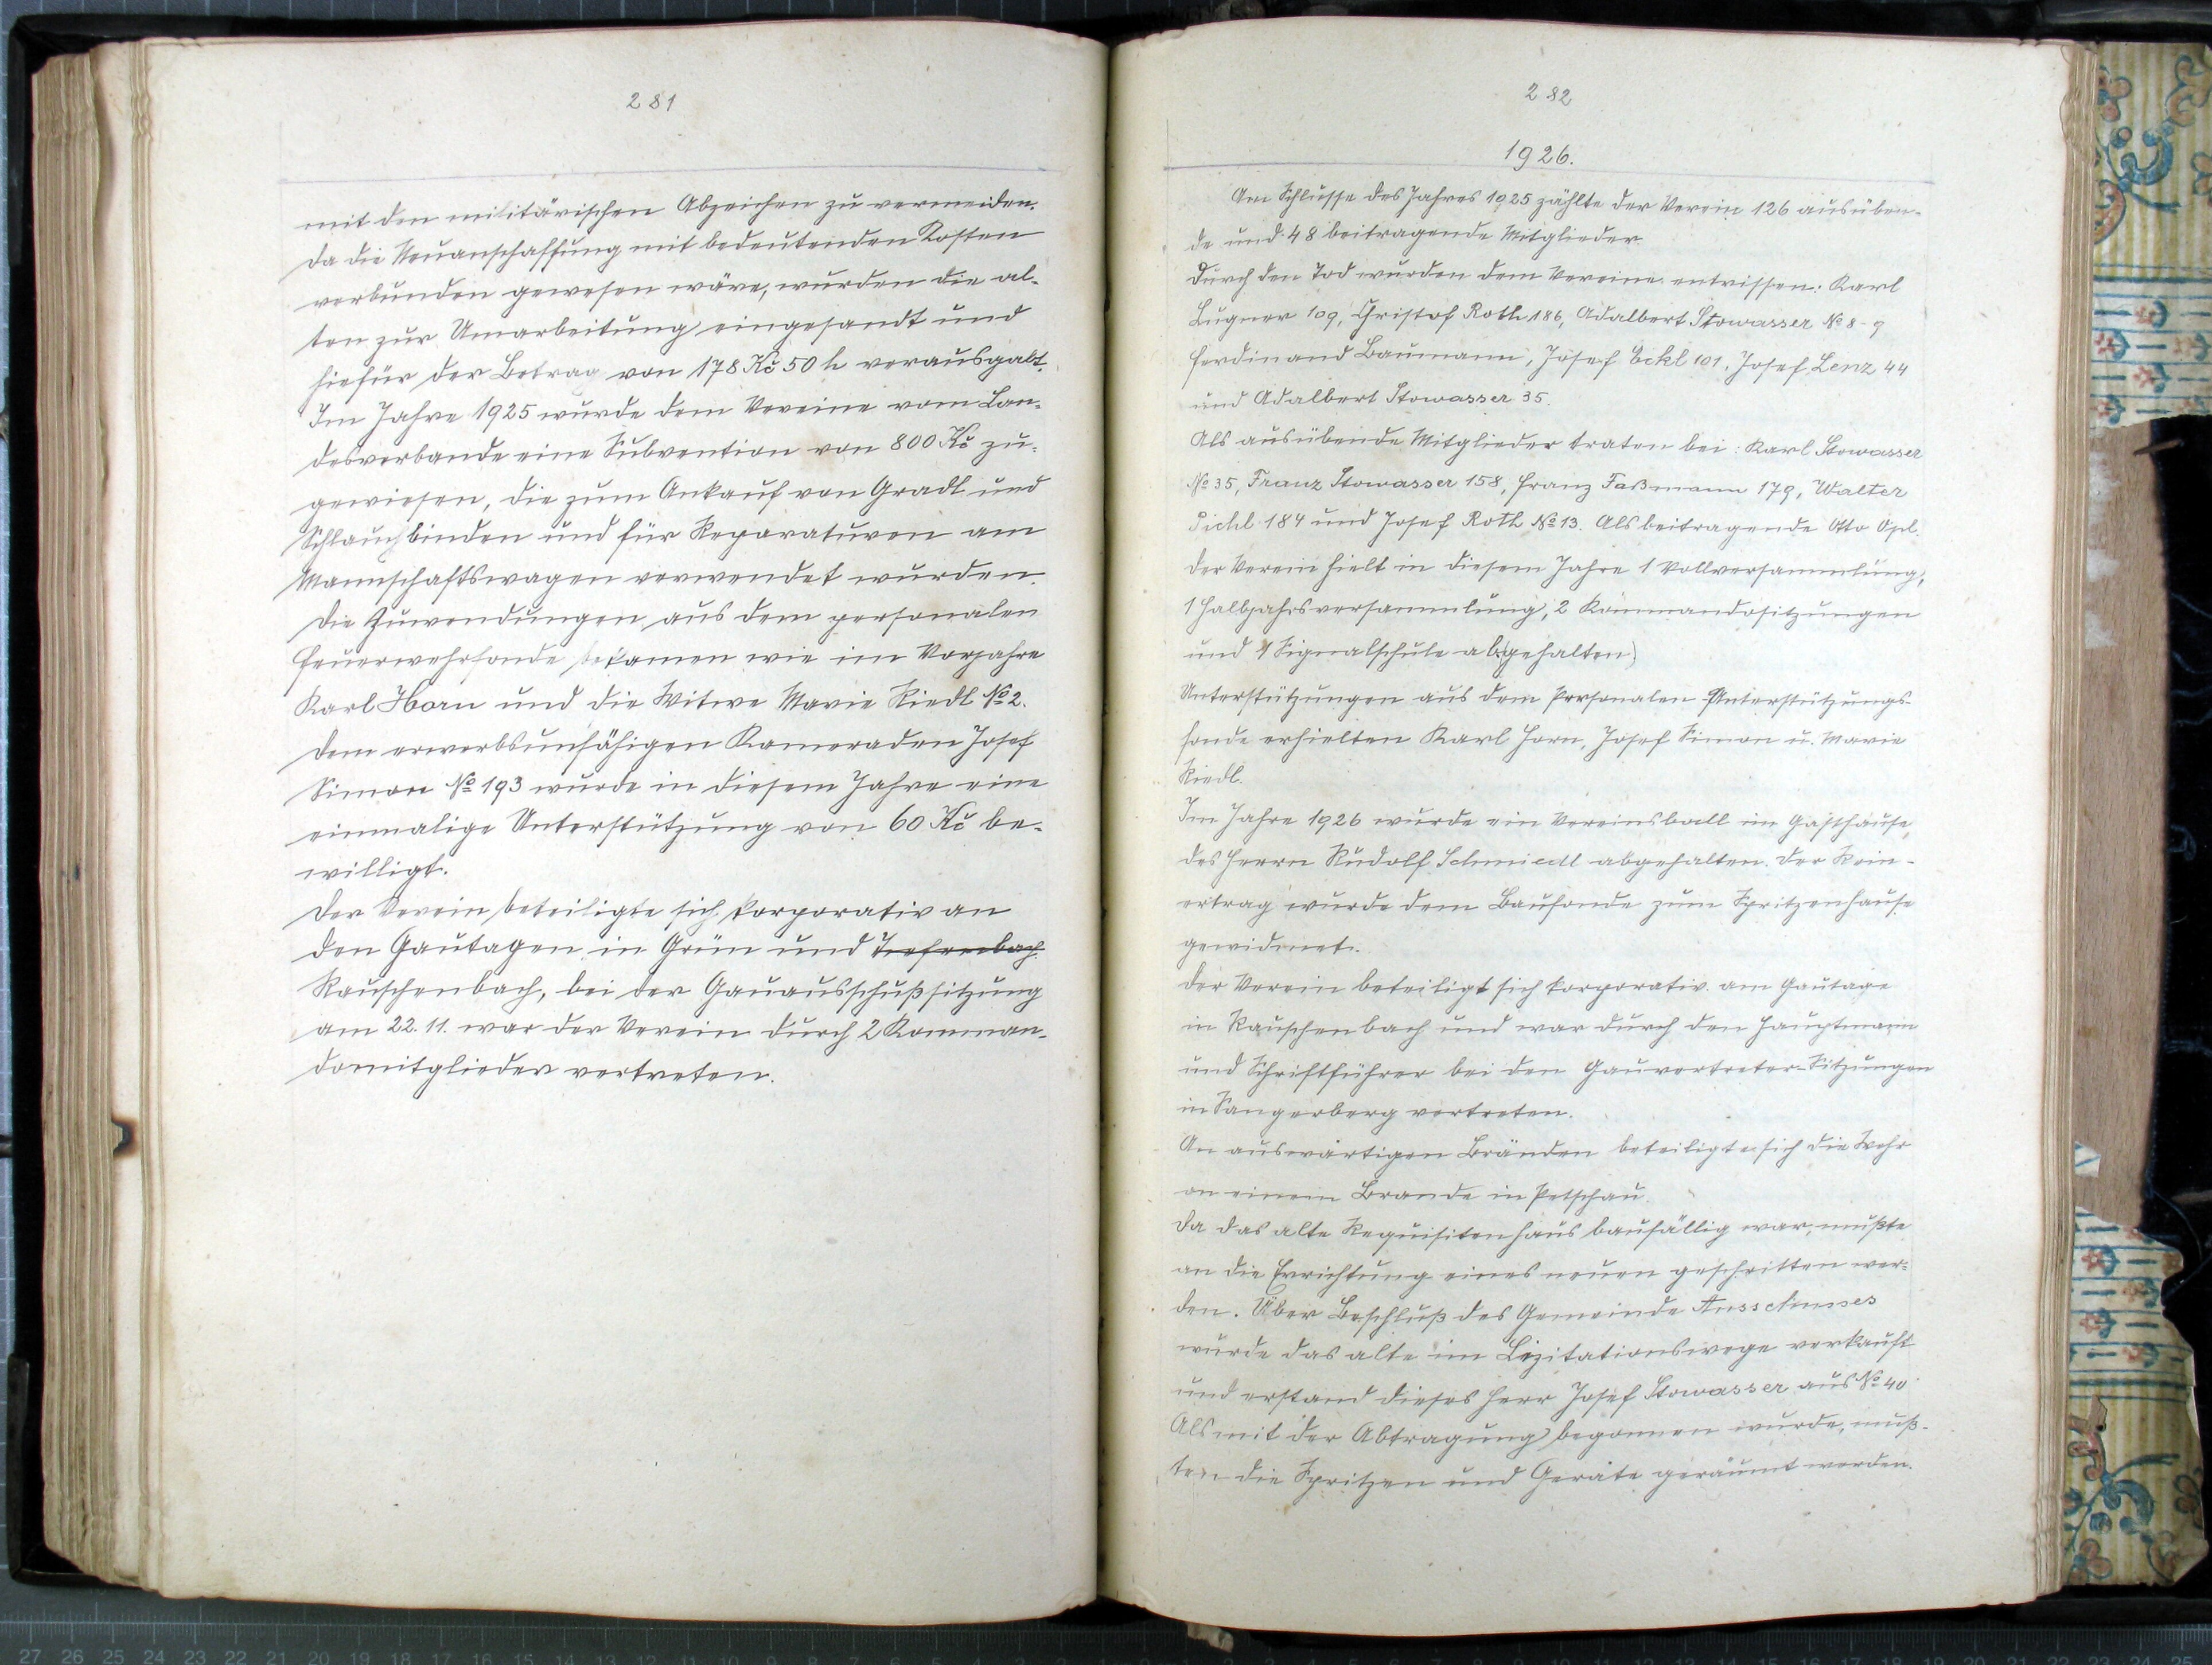 281
mit den militärischen Abzeichen zu vermeiden.
Da die Neuanschaffung mit bedeutenden Kosten
verbunden gewesen wäre, wurden die al-
ten zur Umarbeitung eingesandt und
hiefür der Betrag von 178 Kč 50 h verausgabt.
Im Jahre 1925 wurde dem Vereine vom Lan-
desverbande eine Subvention von 800 Kč zu-
gewiesen, die zum Ankauf von Gradl und
Schlauchbinden und für Reparaturen am
Mannschaftswagen verwendet wurden.
Die Zuwendungen aus dem personalen
Feuerwehrfonde bekamen wie im Vorjahre
Karl Horn und die Witwe Marie Riedl № 2.
Dem erwerbsunfähigen Kameraden Josef
Simon № 193 wurde in diesem Jahre eine
einmalige Unterstützung von 60 Kč be-
willigt.
Der Verein beteiligte sich korporativ an
den Gautagen in Grün und Tiefenbach
Rauschenbach, bei der Gauausschußsitzung
am 22. 11. war der Verein durch 2 Komman-
domitglieder vertreten.
282
1926.
Am Schlusse des Jahres 1925 zählte der Verein 126 ausüben-
de und 48 beitragende Mitglieder.
Durch den Tod wurden dem Vereine entrissen: Karl
Lugner 109, Christof Roth 186, Adalbert Stowasser № 8-9
Ferdinand Baumann, Josef Eckl 101, Josef Lenz 44
und Adalbert Stowasser 35.
Als ausübende Mitglieder traten bei: Karl Stowasser
№ 35, Franz Stowasser 158, Franz Faßmann 179, Walter
Pichl 184 und Josef Roth № 13. Als beitragende Otto Opl.
Der Verein hielt in diesem Jahre 1 Vollversammlung,
1 Halbjahrsversammlung, 2 Kommandositzungen
und 1 Signalschule abgehalten)
Unterstützungen aus dem Personalen Unterstützungs-
fonde erhielten Karl Horn, Josef Simon u. Marie
Riedl.
Im Jahre 1926 wurde ein Vereinsball im Gasthause
des Herrn Rudolf Schmiedl abgehalten. Der Rein-
ertrag wurde dem Baufonde zum Spritzenhause
gewidmet.
Der Verein beteiligt sich korporativ am Gautage
in Rauschenbach und war durch den Hauptmann
und Schriftführer bei den Gauvertreter-Sitzungen
in Sangerberg vertreten.
An auswärtigen Bränden beteiligte sich die Wehr
an einem Brande in Petschau.
Da das alte Requisitenhaus baufällig war, mußte
an die Errichtung eines neuen geschritten wer-
den. Über Beschluß des Gemeinde Ausschusses
wurde das alte im Lizitationswege verkauft
und erstand dieses Herr Josef Stowasser aus № 40
Als mit der Abtragung begonnen wurde, muß-
ten die Spritzen und Geräte geräumt werden.